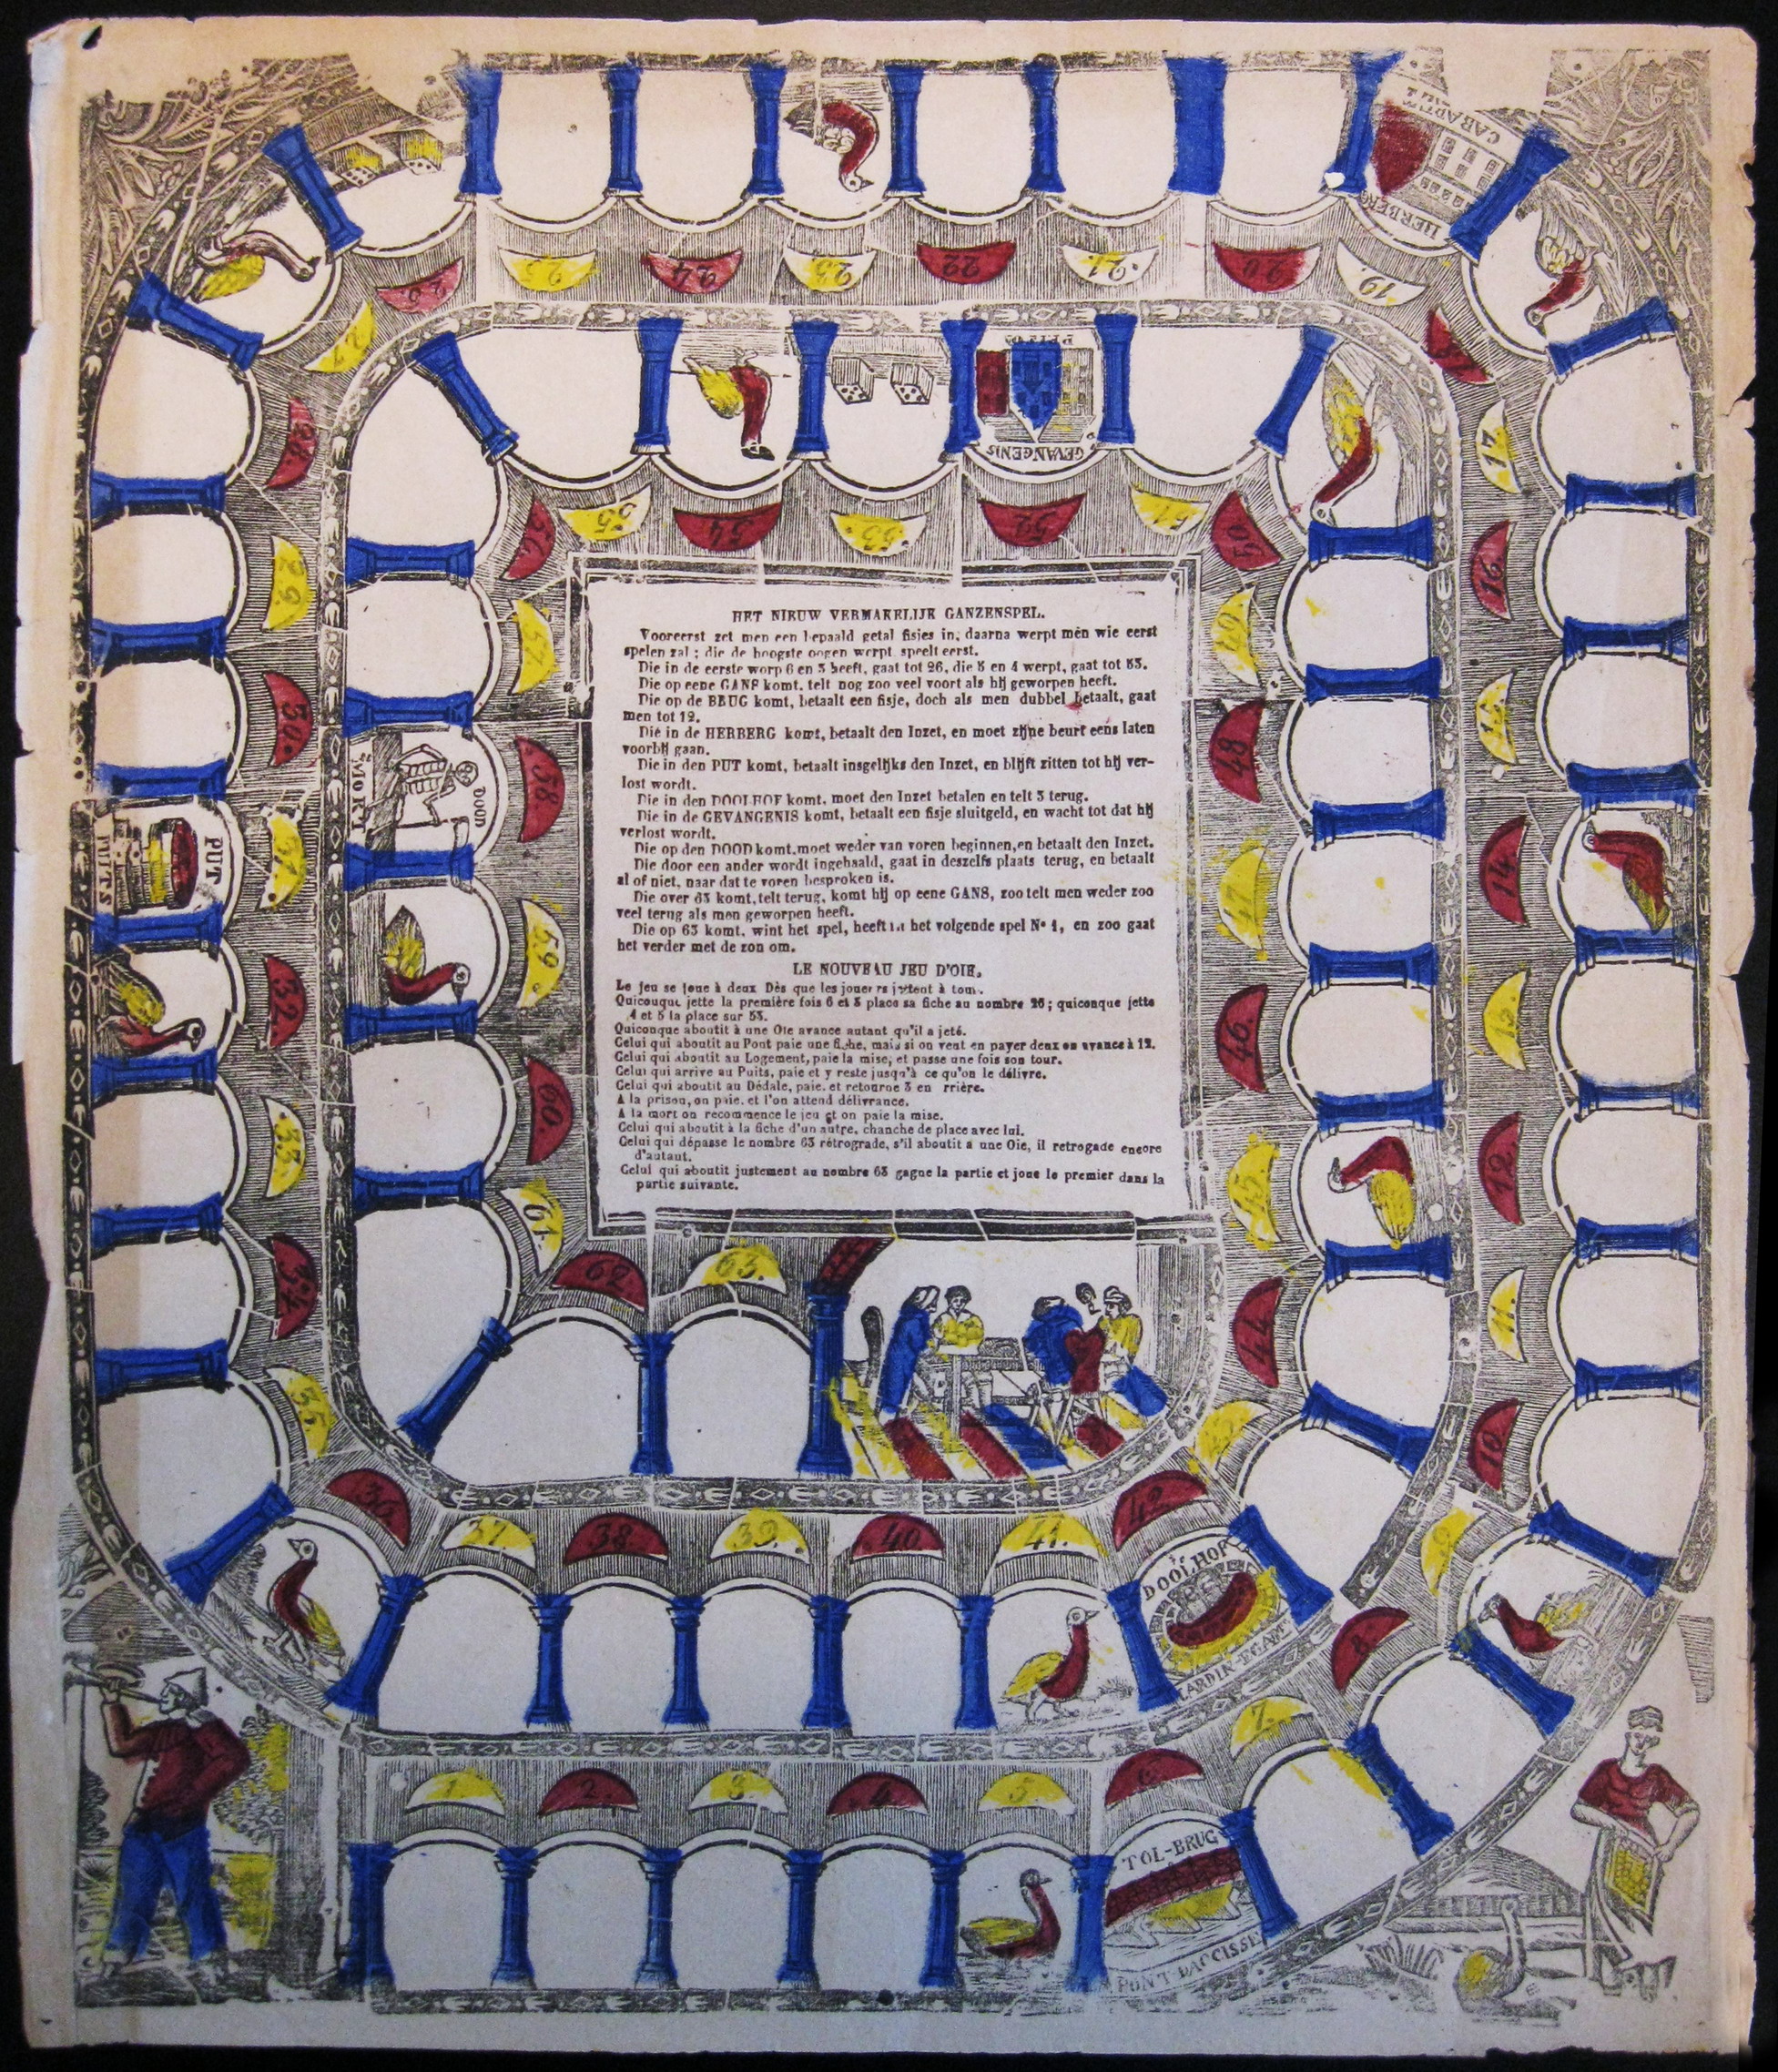 HET NIEUW VERMAKELIJK GANZENSPEL.
Vooreerst zet men een bepaald getal fisjes in, daarna werpt men wie eerst
spelen zal ; die de hoogste oogen werpt speelt eerst.
Die in de eerste worp 6 en 3 heeft, gaat tot 26, die 5 en 4 werpt, gaat tot 53.
Die op eene GANS komt, telt nog zoo veel voort als hij geworpen heeft.
Die op de BRUG komt, betaalt een fisje, doch als men dubbel betaalt, gaat
men tot 12.
Die in de HERBERG komt, betaalt den Inzet, en moet zijne beurt eens laten
voorbij gaan.
Die in den PUT komt, betaalt insgelijks den Inzet, en blijft zitten tot hij ver-
lost wordt.
Die in den DOOLHOF komt, moet den Inzet betalen en telt 3 terug.
Die in de GEVANGENIS komt, betaalt een fisje sluitgeld, en wacht tot dat hij
verlost wordt.
Die op den DOOD komt, moet weder van voren beginnen, en betaalt den Inzet.
Die door een ander wordt ingehaald, gaat in deszelfs plaats terug, en betaalt
al of niet, naar dat te voren besproken is.
Die over 63 komt, telt terug, komt hij op eene GANS, zoo telt men weder zoo
veel terug als men geworpen heeft.
Die op 63 komt, wint het spel, heeft in het volgende spel No 1, en zoo gaat
het verder met de zon om.
LE NOUVEAU JEU D'OIE.
Le jeu se joue à deux Dès que les joueurs jettent à tour.
Quiconque jette la première fois 6 et 3 place sa fiche au nombre 26 ; quiconque jette
4 et 5 la place sur 53.
Quiconque aboutit à une Oie avance autant qu'il a jeté.
Celui qui aboutit au Pont paie une fiche, mais si on veut en payer deux on avance à 12.
Celui qui aboutit au Logement, paie la mise, et passe une fois son tour.
Celui qui arrive au Puits, paie et y reste jusqu'à ce qu'on le délivre.
Celui qui aboutit au Dédale, paie, et retourne 3 en rrière.
A la prison, on paie, et l'on attend délivrance.
A la mort on recommence le jeu et on paie la mise.
Celui qui aboutit à la fiche d'un autre, chanche de place avec lui.
Celui qui dépasse le nombre 63 rétrograde, s'il aboutit a une Oie, il retrogade encore
d'autant.
Celui qui aboutit justement au nombre 63 gagne la partie et joue le premier dans la
partie suivante.
1.
2.
3
4
5
6.
7.
8.
9
10
11.
12.
13
14
15.
16.
17
18
19.
20
21.
22
23.
24
25
26
27
28
29.
30.
31.
32.
33
34
35
36
37
38.
39.
40
41.
42
43
44
45
46.
47
48
49
50
51
52
53
54
55
56
57
58
59
60.
61.
62
63.
TOL-BRUG
PONT D'ACCISSE
HERBERG
CABARET
PUT
PUITS
DOOLHOF
GEVANGENIS
DOOD
MORT